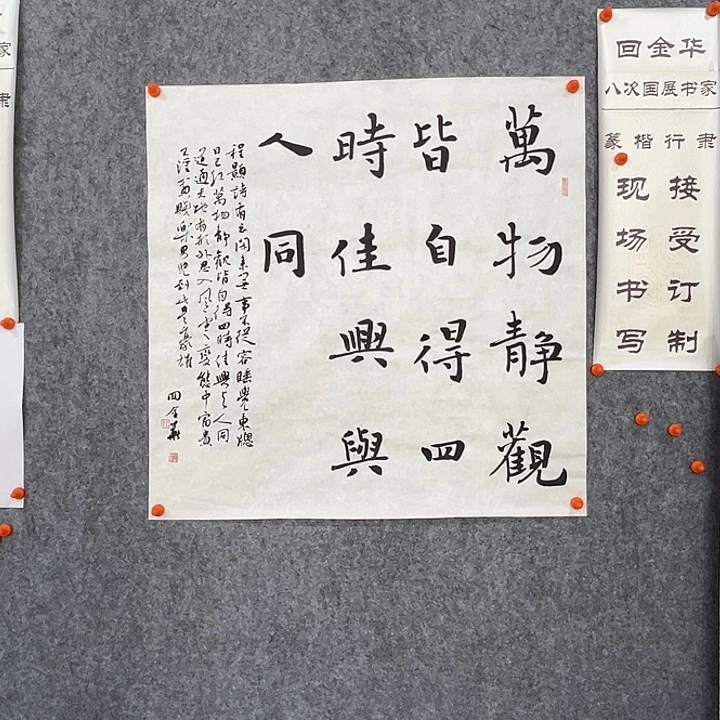 萬物静觀
皆自得四
時佳興與
人同
程顥詩有云閑来無事不從容睡覺東牕
日已紅萬物静觀皆自得四時佳興與人同
道通天地有形外思入風雲變態中富貴
不淫貧賤樂男兒到此是豪雄
回金華
回金华
八次国展书家
篆楷行隶
接受订制
现场书写
家
隶